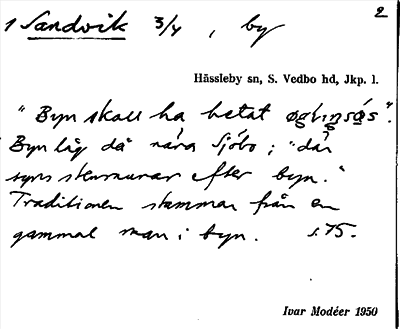 1 Sandvik 3/4, by 2
Hässleby sn, S. Vedbo hd, Jkp. l.
"Byn skall ha hetat
Byn låg då nära Sjöbo; "där
syns stenmurar efter byn."
Traditionen stammar från en
gammal man i byn. s. 75.
Ivar Modéer 1950